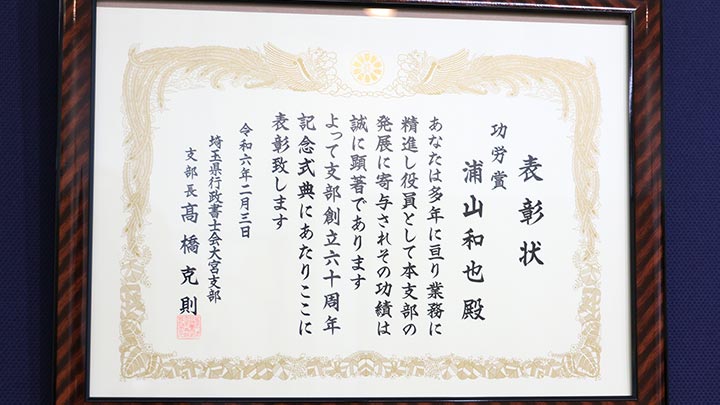 表彰状
功労賞
浦山和也殿
あなたは多年に亘り業務に
精進し役員として本支部の
発展に寄与されその功績は
誠に顕著であります
よって支部創立六十周年
記念式典にあたりここに
表彰致します
令和六年二月三日
埼玉県行政書士会大宮支部
支部長 高橋克則